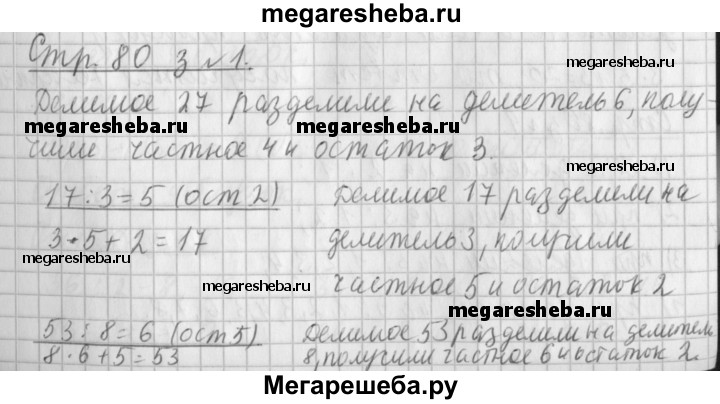 megaresheba.ru
Стр. 80 з №1.
megaresheba.ru
Делимое 27 разделили на делитель 6, полу-
megaresheba.ru megaresheba.ru
чили частное 4 и остаток 3.
megaresheba.ru
17:3=5 (ост 2) Делимое 17 разделили на
3·5+2=17 делитель 3, получили
megaresheba.ru megaresheba.ru
частное 5 и остаток 2
megaresheba.ru megaresheba.ru
53:8=6 (ост 5) Делимое 53 разделили на делитель
8·6+5=53 8, получили частное 6 и остаток 2.
Мегарешеба.ру